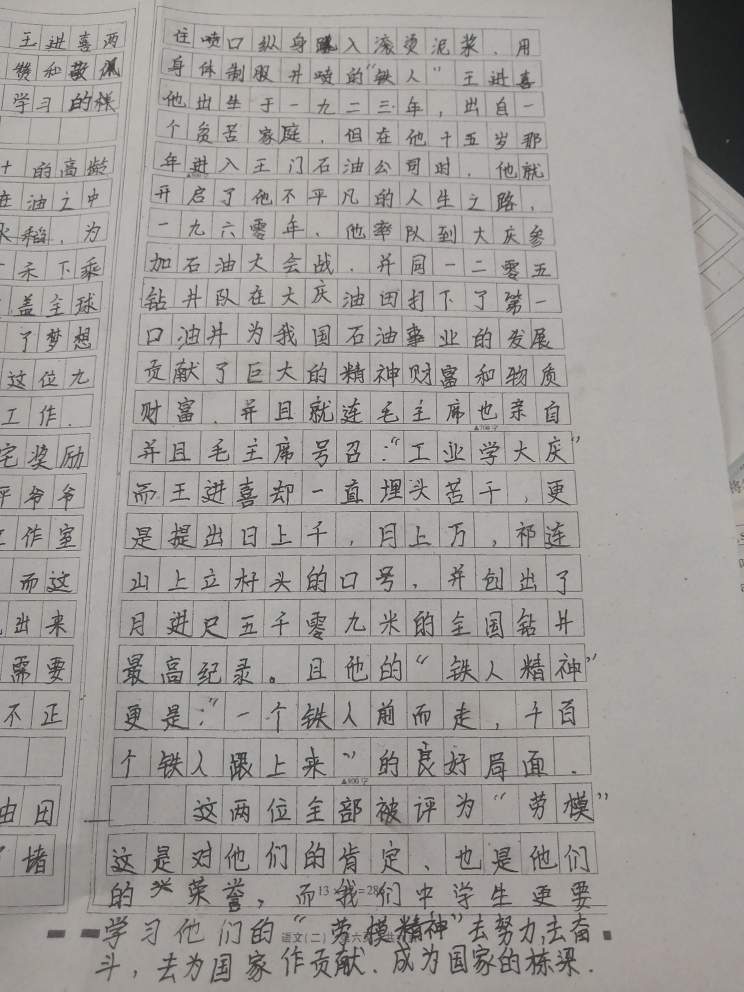 王进喜两
赞和敬佩
学习的榜
十的高龄
在油之中
水稻.为
禾下乘
盖全球
了梦想
这位九
工作.
宅奖励
平爷爷
工作室
而这
出来
需要
不正
油田
了堵
住喷口纵身跳入滚烫泥浆.用
身体制服井喷的“铁人”王进喜
他出生于一九二三年,出自一
个贫苦家庭.但在他十五岁那
年进入王门石油公司时.他就
开启了他不平凡的人生之路.
一九六零年.他率队到大庆参
加石油大会战.并同一二零五
钻井队在大庆油田打下了第一
口油井为我国石油事业的发展
贡献了巨大的精神财富和物质
财富.并且就连毛主席也亲自
▲700字
并且毛主席号召:“工业学大庆”
而王进喜却一直埋头苦干,更
是提出日上千,月上万,祁连
山上立标头的口号.并创出了
月进尺五千零九米的全国钻井
最高纪录。且他的“铁人精神”
更是:“一个铁人前而走,千百
个铁人跟上来”的良好局面.
▲800字
这两位全部被评为“劳模”
这是对他们的肯定、也是他们
的光荣誉,而我们中学生更要
学习他们的“劳模精神”去努力,去奋
语文(二)
斗,去为国家作贡献.成为国家的栋梁.